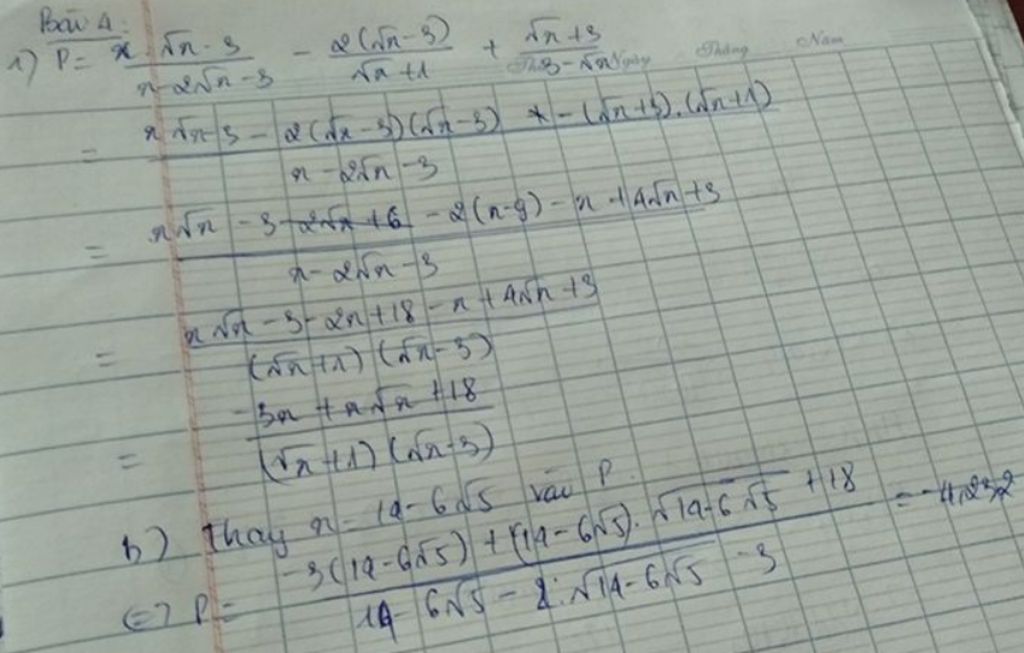 Bài 4:
1) P = x√x - 3 / x - 2√x - 3 - 2(√x - 3) / √x + 1 + √x + 3 / 3 - √x
Thứ Ngày Tháng Năm
= x√x - 3 - 2(√x - 3)(√x - 3) - (√x + 3).(√x + 1) / x - 2√x - 3
= x√x - 3 - 2√x + 6 - 2(x - 9) - x + 4√x + 3 / x - 2√x - 3
= x√x - 3 - 2x + 18 - x + 4√x + 3 / (√x + 1)(√x - 3)
= -3x + x√x + 18 / (√x + 1)(√x - 3)
b) Thay x = 14 - 6√5 vào P.
<=> P = -3(14 - 6√5) + (14 - 6√5).√14 - 6√5 + 18 / 14 - 6√5 - 2.√14 - 6√5 - 3 =